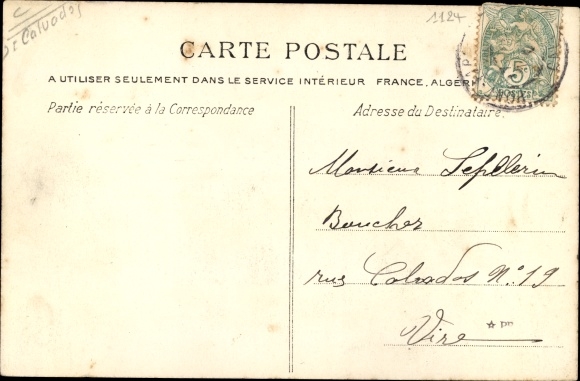 C
Dt Calvados
1124
CARTE POSTALE
A UTILISER SEULEMENT DANS LE SERVICE INTÉRIEUR FRANCE, ALGÉR
5
POSTES
Partie réservée à la Correspondance
Adresse du Destinataire.
Monsieur Lepelletier
Boucher
rue Calvados N° 19
Vire